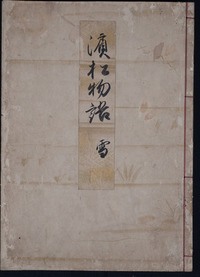 濱松物語 雪